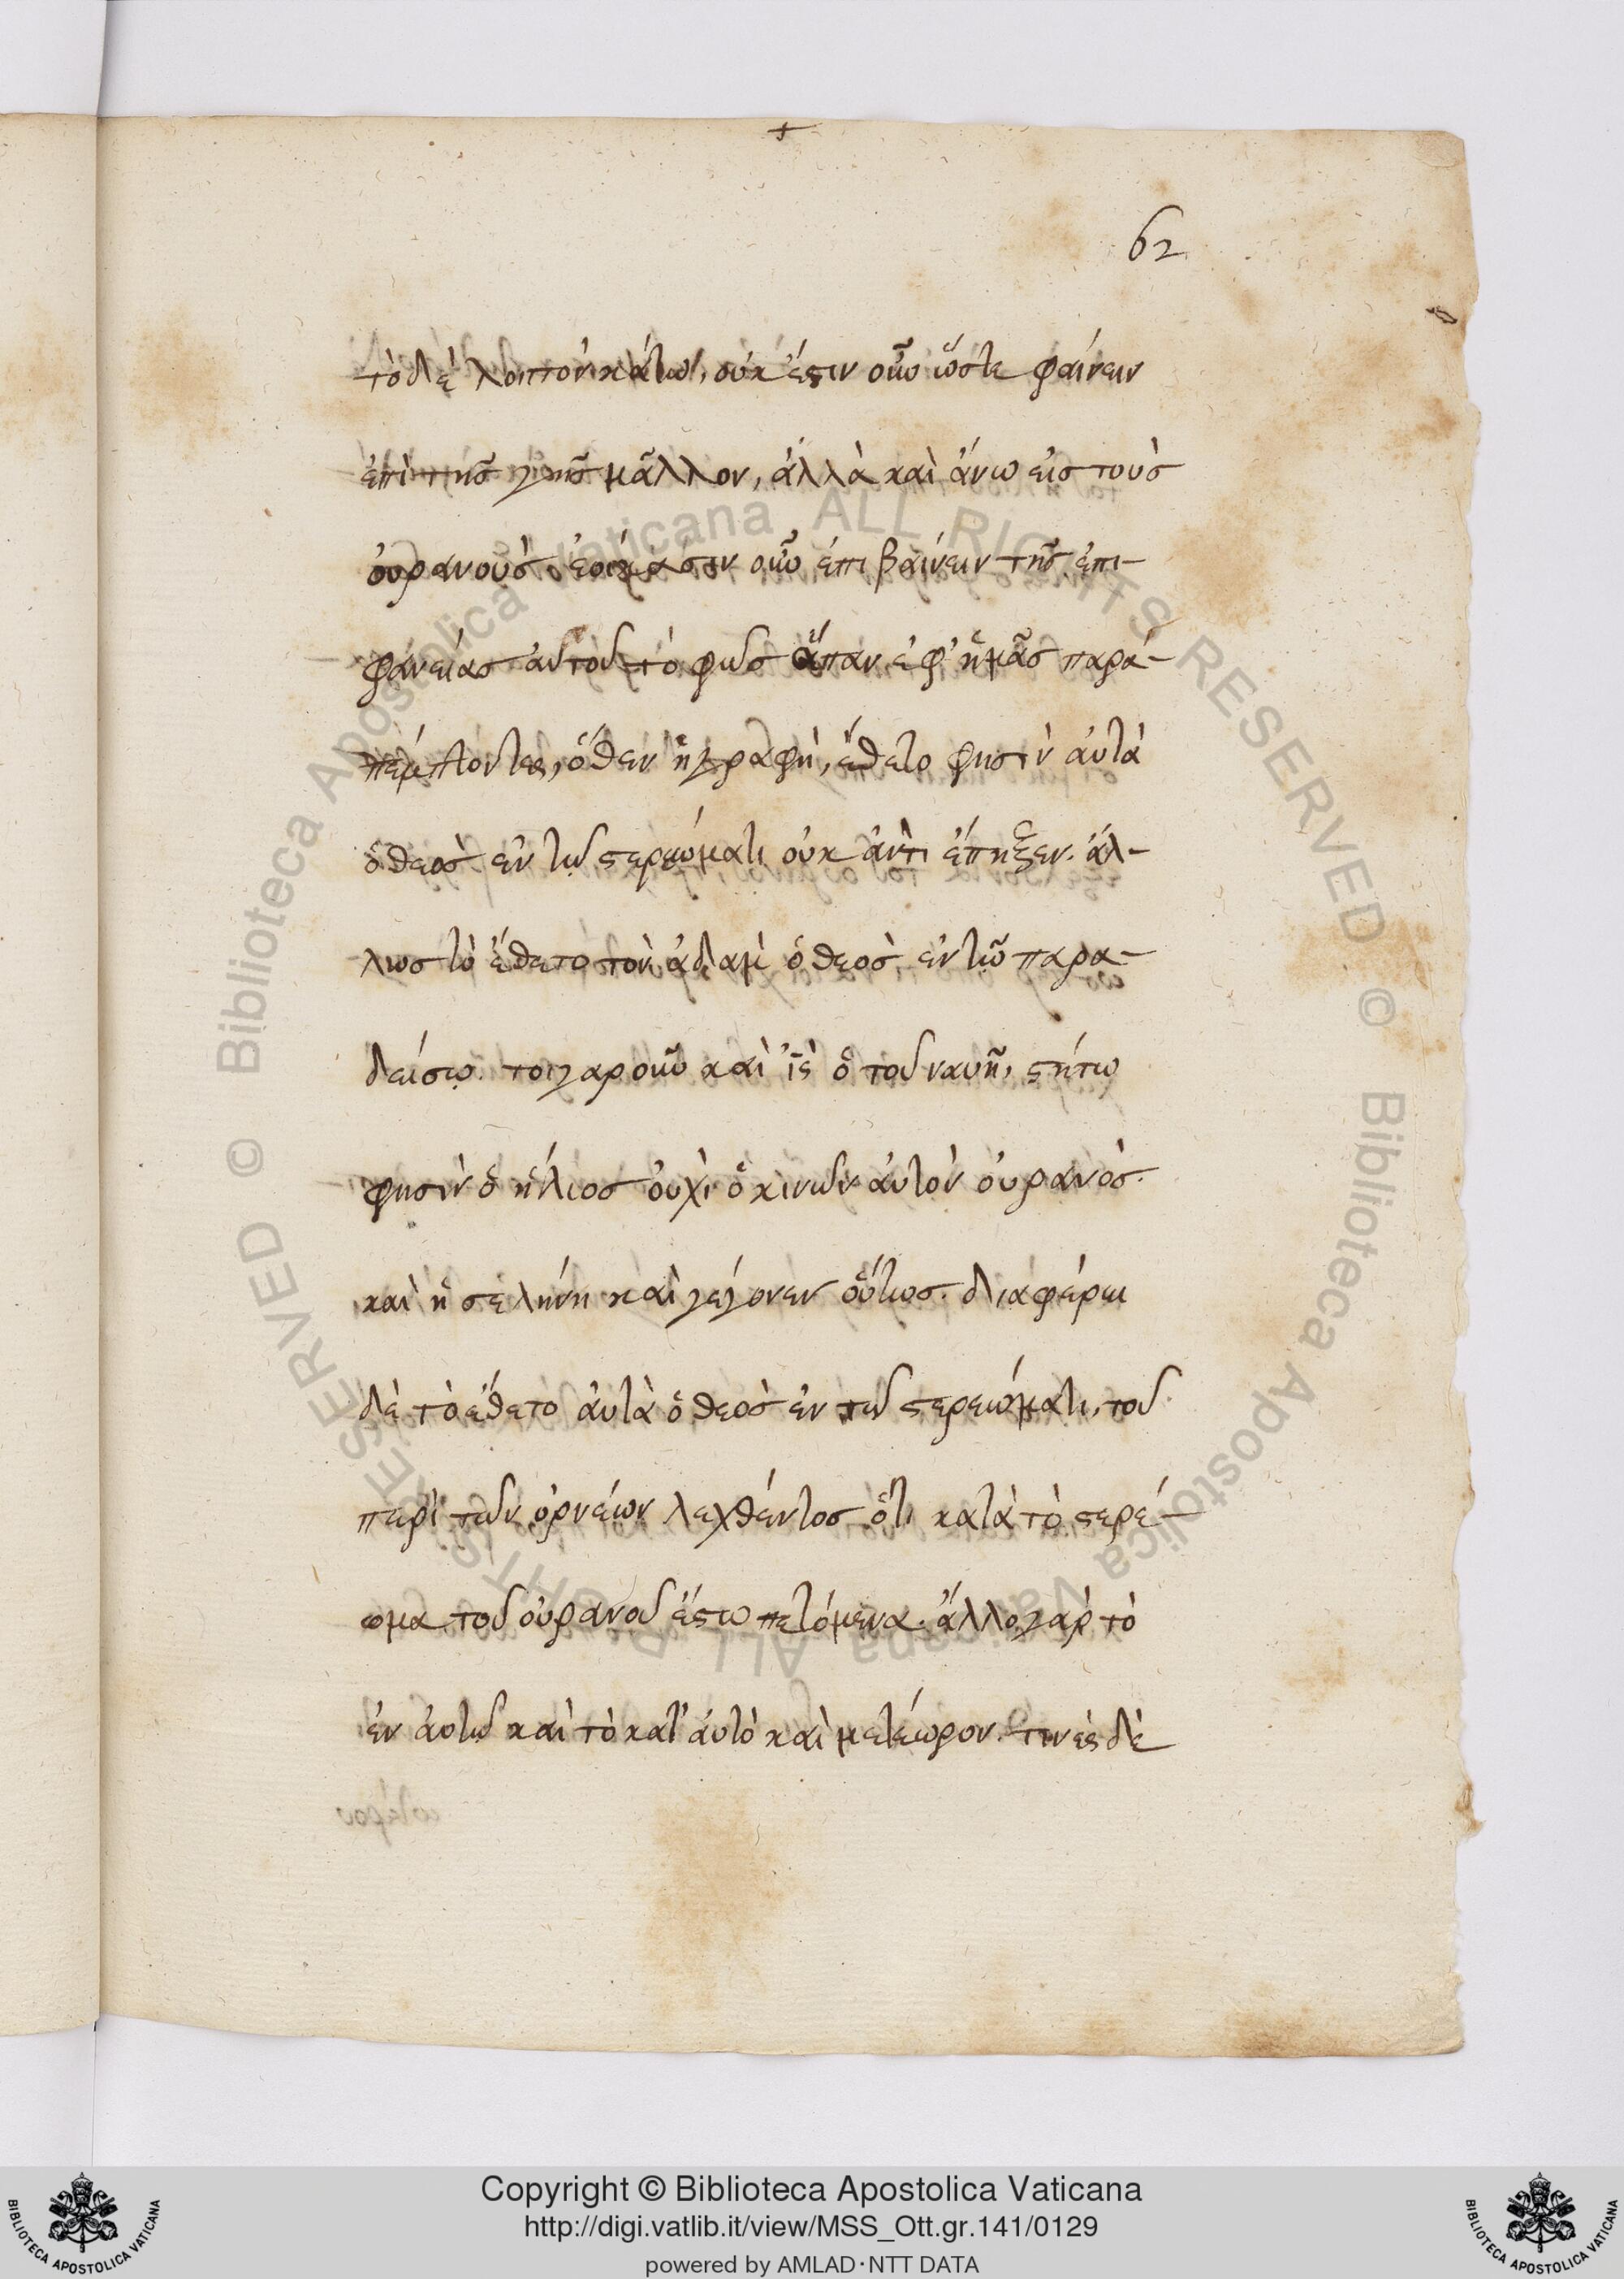 62
τὸ δὲ λοιπὸν κάτω, οὐκ ἔστιν οὖν ὥστε φαίνειν
ἐπὶ τῆς γῆς μᾶλλον, ἀλλὰ καὶ ἄνω εἰς τοὺς
οὐρανούς, οὖν ἐπιβαίνειν τῆς ἐπι-
φανείας αὐτοῦ τὸ φῶς ἅπαν ἐφ' ἡμᾶς παρα-
πέμποντες, ὅθεν ἡ γραφὴ, ἔθετο φησὶν αὐτὰ
ὁ θεὸς ἐν τῷ στερεώματι οὐκ ἀντὶ ἔπηξεν. ἀλ-
λως τὸ ἔθετο τὸν ἀδὰμ ὁ θεὸς ἐν τῷ παρα-
δείσῳ. τοιγαροῦν καὶ ἰ̅ς̅ ὁ τοῦ ναυῆ, στήτω
φησὶν ὁ ἥλιος οὐχὶ ὁ κινῶν αὐτὸν οὐρανὸς.
καὶ ἡ σελήνη καὶ γέγονεν οὕτως. διαφέρει
δὲ τὸ ἔθετο αὐτὰ ὁ θεὸς ἐν τῷ στερεώματι, τοῦ
περὶ τῶν ὀρνέων λεχθέντος ὅτι κατὰ τὸ στερέ-
ωμα τοῦ οὐρανοῦ ἔστω πετόμενα. ἄλλο γὰρ τὸ
ἐν αὐτῷ καὶ τὸ κατ' αὐτὸ καὶ μετέωρον. τινὲς δὲ
Copyright © Biblioteca Apostolica Vaticana
http://digi.vatlib.it/view/MSS_Ott.gr.141/0129
powered by AMLAD·NTT DATA